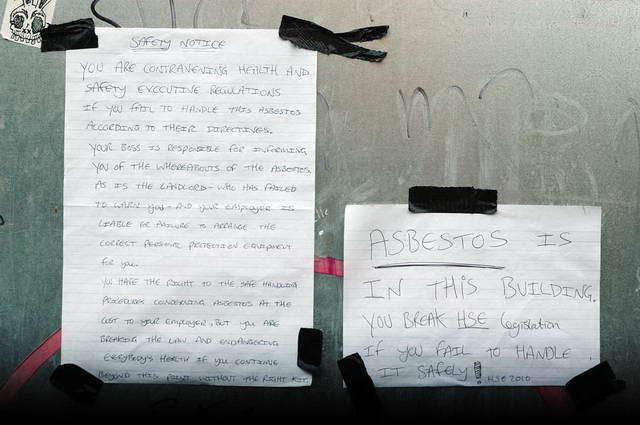 SAFETY NOTICE
YOU ARE CONTRAVENING HEALTH AND
SAFETY EXECUTIVE REGULATIONS
IF YOU FAIL TO HANDLE THIS ASBESTOS
ACCORDING TO THEIR DIRECTIVES.
YOUR BOSS IS RESPONSIBLE FOR INFORMING
YOU OF THE WHEREABOUTS OF THE ASBESTOS.
AS IS THE LANDLORD - WHO HAS FAILED
TO WARN you - AND your EMPLOYER IS
LIABLE FOR FAILURE TO ARRANGE THE
CORRECT PERSONAL PROTECTION EQUIPMENT
for you.
YOU HAVE THE RIGHT TO THE SAFE HANDLING
PROCEDURES CONCERNING ASBESTOS AT THE
COST TO YOUR EMPLOYER, BUT YOU ARE
BREAKING THE LAW AND ENDANGERING
EVERYBODY'S HEALTH IF YOU CONTINUE
BEYOND THIS POINT WITHOUT THE RIGHT KIT.
ASBESTOS IS
IN THIS BUILDING.
YOU BREAK HSE legislation
IF YOU FAIL TO HANDLE
IT SAFELY! HSE 2010